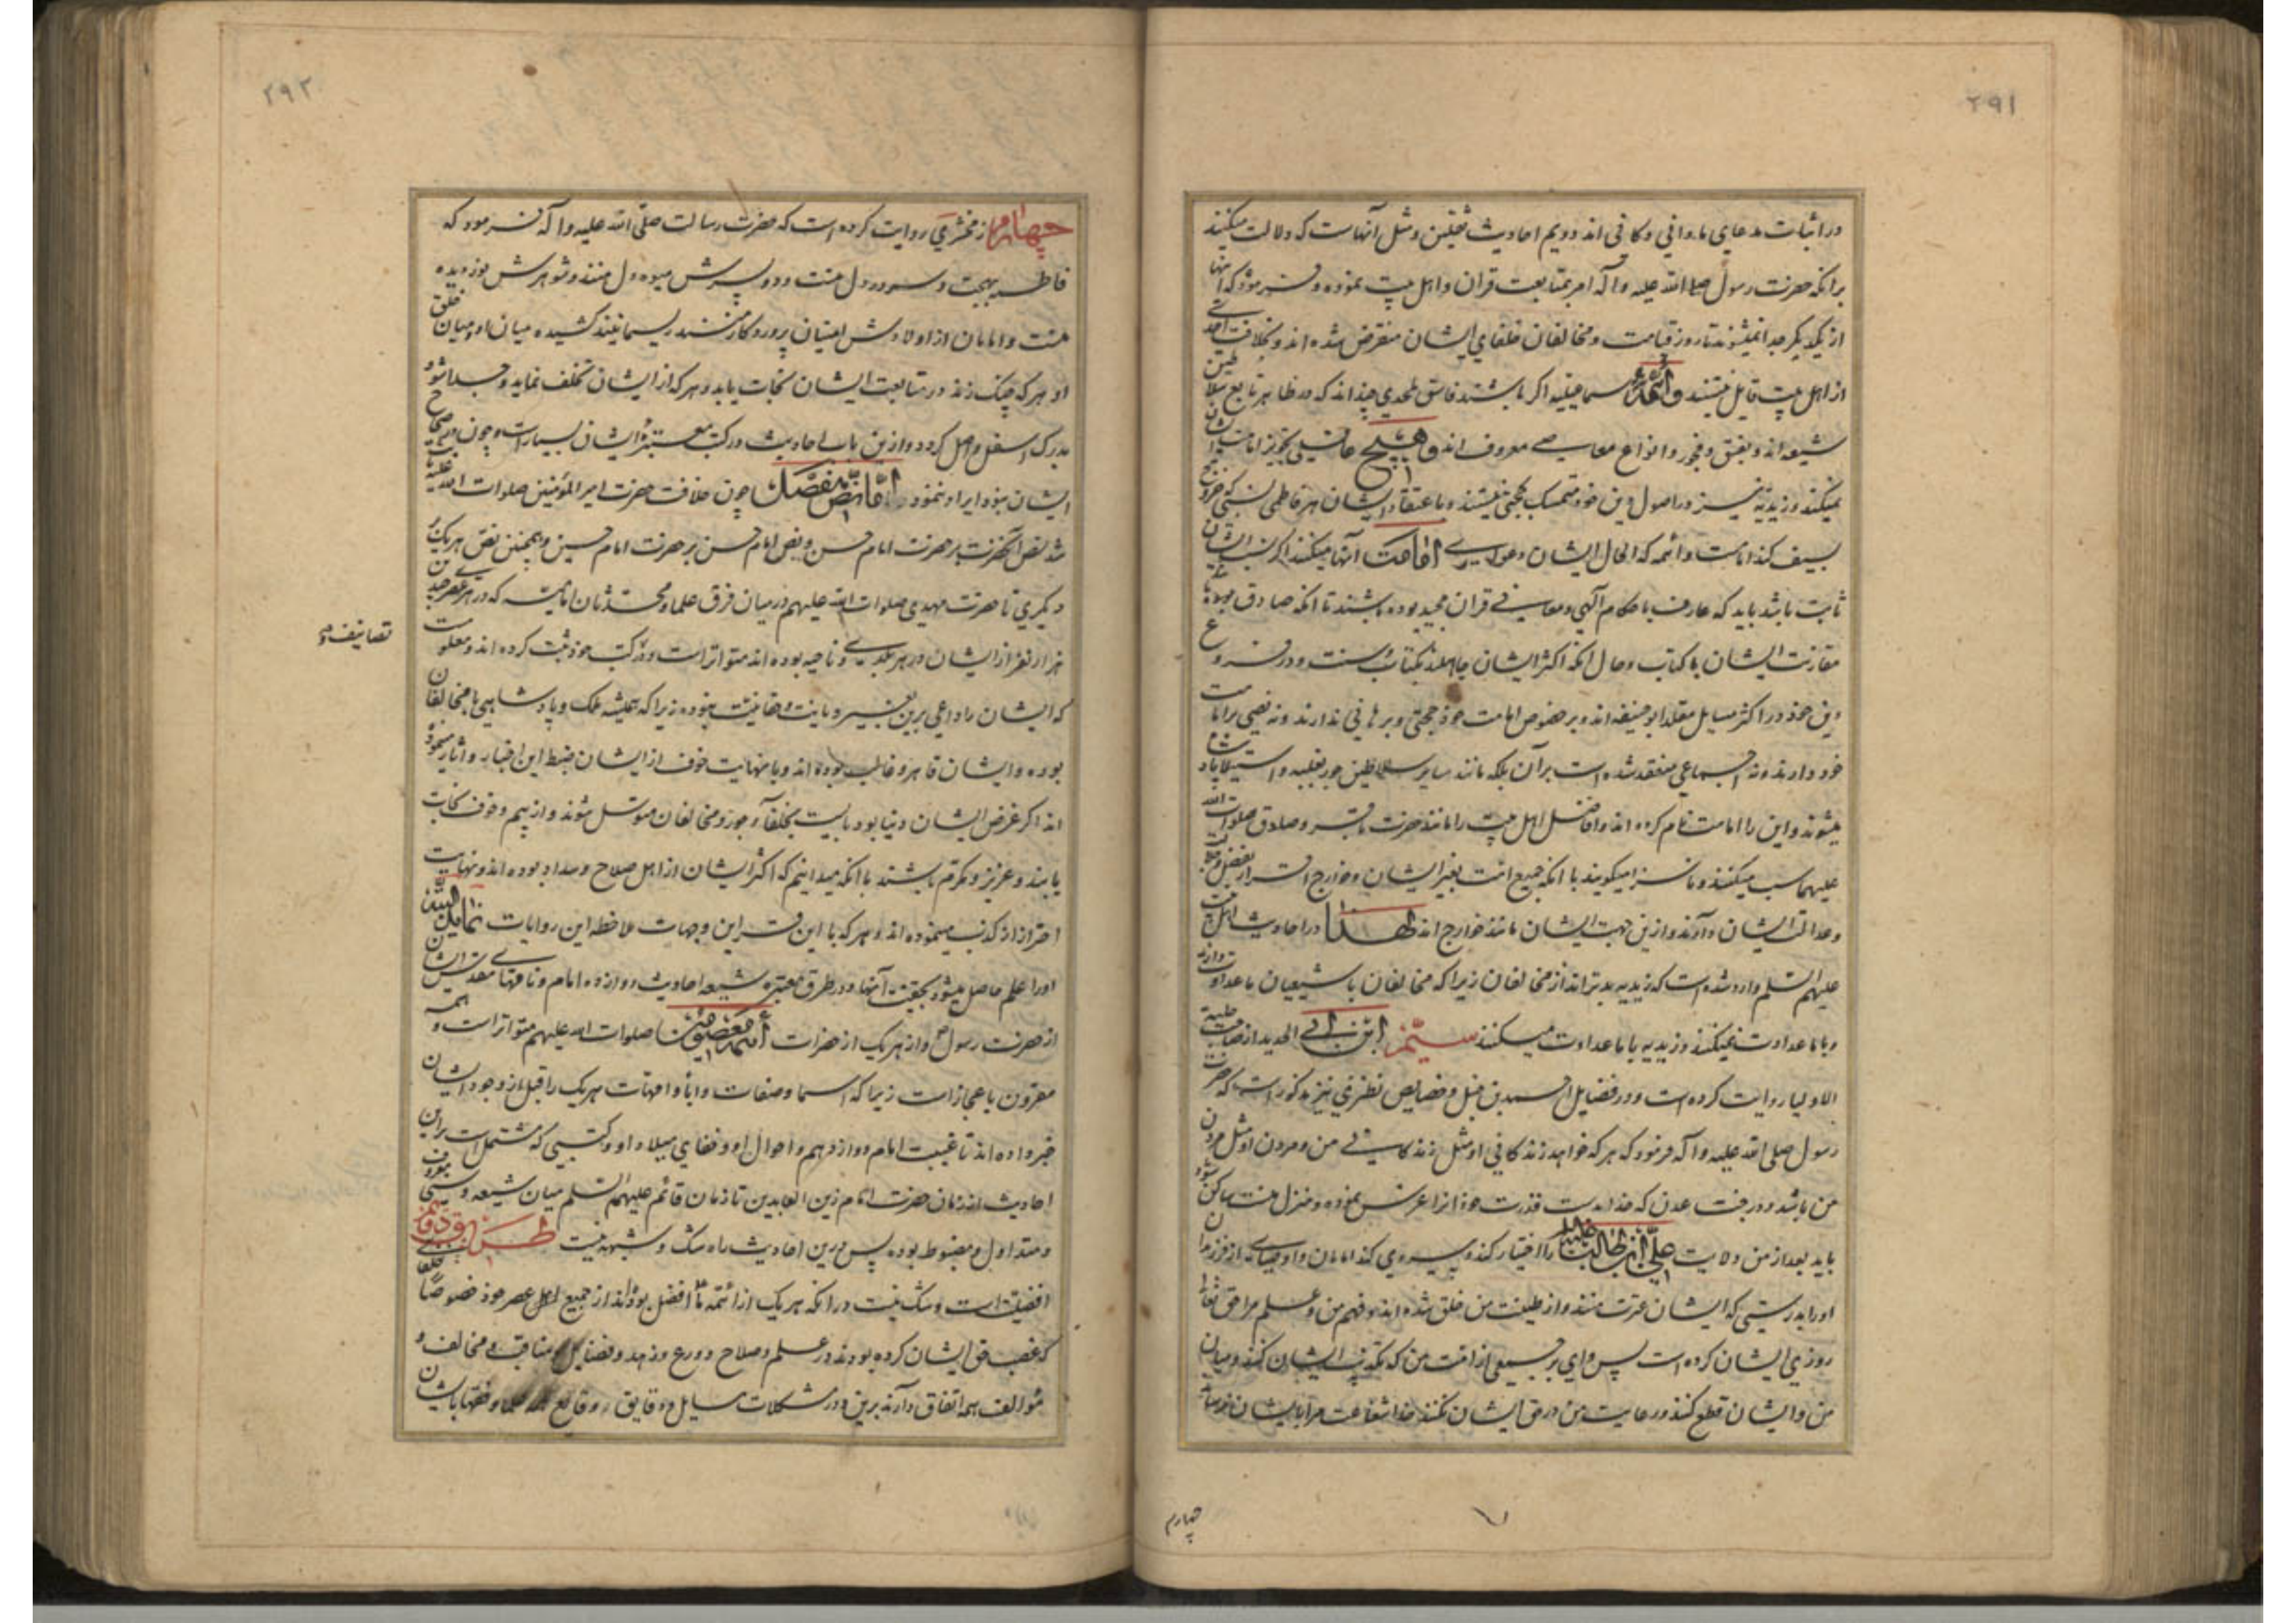 ۲۹۱
در اثبات مدعای ما وافی و کافی اند دویم احادیث ثقلین و مثل آنهاست که دلالت میکنند
برانکه حضرت رسول صلی الله علیه و آله امر بمتابعت قران و اهل بیت نموده و فرموده که اینها
از یکدیگر جدا نمیشوند تا روز قیامت و مخالفان خلفای ایشان منقرض شده اند و بخلافت احدی
از اهل بیت قایل نیستند و ائمه اسماعیلیه اکر باشند فاسق ملحدی چند اند که در ظاهر تابع سلاطین
شیعه اند و بفسق و فجور و انواع معاصی معروف اند و هیچ عاقلی تجویز امامت ایشان
نمیکند و زیدیه نیز در اصول دین خود متمسک بحجتی نیستند و باعتقاد ایشان هر فاطمی نسبی که خروج
بسیف کند امامست و ائمه که الحال ایشان دعوای امامت آنها میکنند اکر نسب ایشان
ثابت باشد باید که عارف باحکام آلهی و معانی قران مجید بوده باشند تا انکه صادق بوده باشد
مقارنت ایشان با کتاب و حال انکه اکثر ایشان جاهلند بکتاب و سنت و در فروع
دین خود در اکثر مسایل مقلد ابوحنیفه اند و بر خصوص امامت خود حجتی و برهانی ندارند و نه نصی بر امامت
خود دارند و نه اجماعی منعقد شده است بر آن بلکه مانند سایر سلاطین جور بغلبه و استیلا پادشاه
میشوند و این را امامت نام کرده اند و افضل اهل بیت را مانند حضرت باقر و صادق صلوات الله
علیهما سب میکنند و ناسزا میکویند با انکه جمیع امت بغیر ایشان و خوارج اقرار بفضل و جلالت
و عدالت ایشان دارند و ازین جهت ایشان مانند خوارج اند لهذا در احادیث اهل بیت
علیهم السلم وارد شده است که زیدیه بدتر اند از مخالفان زیرا که مخالفان با شیعیان ما عداوت دارند
و با ما عداوت نمیکنند و زیدیه با ما عداوت میکنند سیّم ابن ابی الحدید از صاحب حلیة
الاولیا روایت کرده است و در فضایل احمد بن حنبل و خصایص نطنزی نیز مذکور است که حضرت
رسول صلی الله علیه و آله فرمود که هر که خواهد زندکانی او مثل زندکانی من و مردن او مثل مردن
من باشد و در جنت عدن که خدا بدست قدرت خود انرا غرس نموده و منزل منست ساکن شود
باید بعد از من ولایت علی ابن ابی طالب علیه السلم را اختیار کند و پیروی کند امامان و اوصیای از فرزندان
او را بدرستی که ایشان عترت منند و از طینت من خلق شده اند و فهم من و علم مرا حق تعالی
روزی ایشان کرده است پس وای بر جمعی از امت من که تکذیب ایشان کنند و میان
من و ایشان قطع کنند و رعایت من در حق ایشان نکنند خدا شفاعت مرا بایشان نرساند
چهارم
۲۹۲
چهارم از مخشری روایت کرده است که حضرت رسالت صلی الله علیه و آله فرمود که
فاطمه بهجت و سرور دل منست و دو پسرش میوه دل منند و شوهرش نور دیده
منست و امامان از اولادش امینان پروردکار منند ریسمانیند کشیده میان او و میان خلق
او هر که چنک زند در متابعت ایشان نجات یابد و هر که از ایشان تخلف نماید و جدا شود
بدرک اسفل واصل کردد و ازین باب احادیث در کتب معتبره ایشان بسیار است و چون در صحاح
ایشان نبود ایراد ننمود اما نص مفصل چون خلافت حضرت امیر المؤمنین صلوات الله علیه ثابت
شد نص آنحضرت بر حضرت امام حسن و نص امام حسن بر حضرت امام حسین و همچنین نص هر یک بر
دیکری تا حضرت مهدی صلوات الله علیهم در میان فرق علما و محدثان امامیه که در هر عصر چندین
هزار نفر از ایشان در هر بلدی و ناحیه بوده اند متواتر است و در کتب خود ثبت کرده اند و معلومست
تصانیف و
که ایشان را داعی برین بغیر دیانت و حقانیت نبوده زیرا که همیشه ملک و پادشاهی با مخالفان
بوده و ایشان قاهر و غالب بوده اند و با نهایت خوف از ایشان ضبط این اخبار و اثار مینموده
اند اکر غرض ایشان دنیا بود بایست بخلفا جور و مخالفان متوسل شوند و از بیم و خوف نجات
یابند و عزیز و مکرم باشند با انکه میدانیم که اکثر ایشان از اهل صلاح و سداد بوده اند و نهایت
احتراز از کذب مینموده اند و هر که با این قراین و جهات ملاحظه این روایات نماید البته
او را علم حاصل میشود بحقیت آنها و در طرق معتبره شیعه احادیث دوازده امام و نامهای مقدس ایشان
از حضرت رسول و از هر یک از حضرات ائمه معصومین صلوات الله علیهم متواتر است و همه
مقرون باعجاز است زیرا که اسما و صفات و ابا و امهات هر یک را قبل از وجود ایشان
خبر داده اند تا غیبت امام دوازدهم و احوال او و خفای میلاد او و کتبی که مشتمل است بر این
احادیث از زمان حضرت امام زین العابدین تا زمان قائم علیهم السلم میان شیعه و سنی معروف
و متداول و مضبوط بوده پس درین احادیث راه شک و شبهه نیست طریق دوم
افضلیت است و شک نیست در انکه هر یک از ائمه ما افضل بودند از جمیع اهل عصر خود خصوصا خلفائی
که غصب حق ایشان کرده بودند در علم و صلاح و ورع و زهد و فضایل و مناقب و مخالف و
مؤالف همه اتفاق دارند برین و در مشکلات مسایل و دقایق وقایع همه علما و فقها بایشان